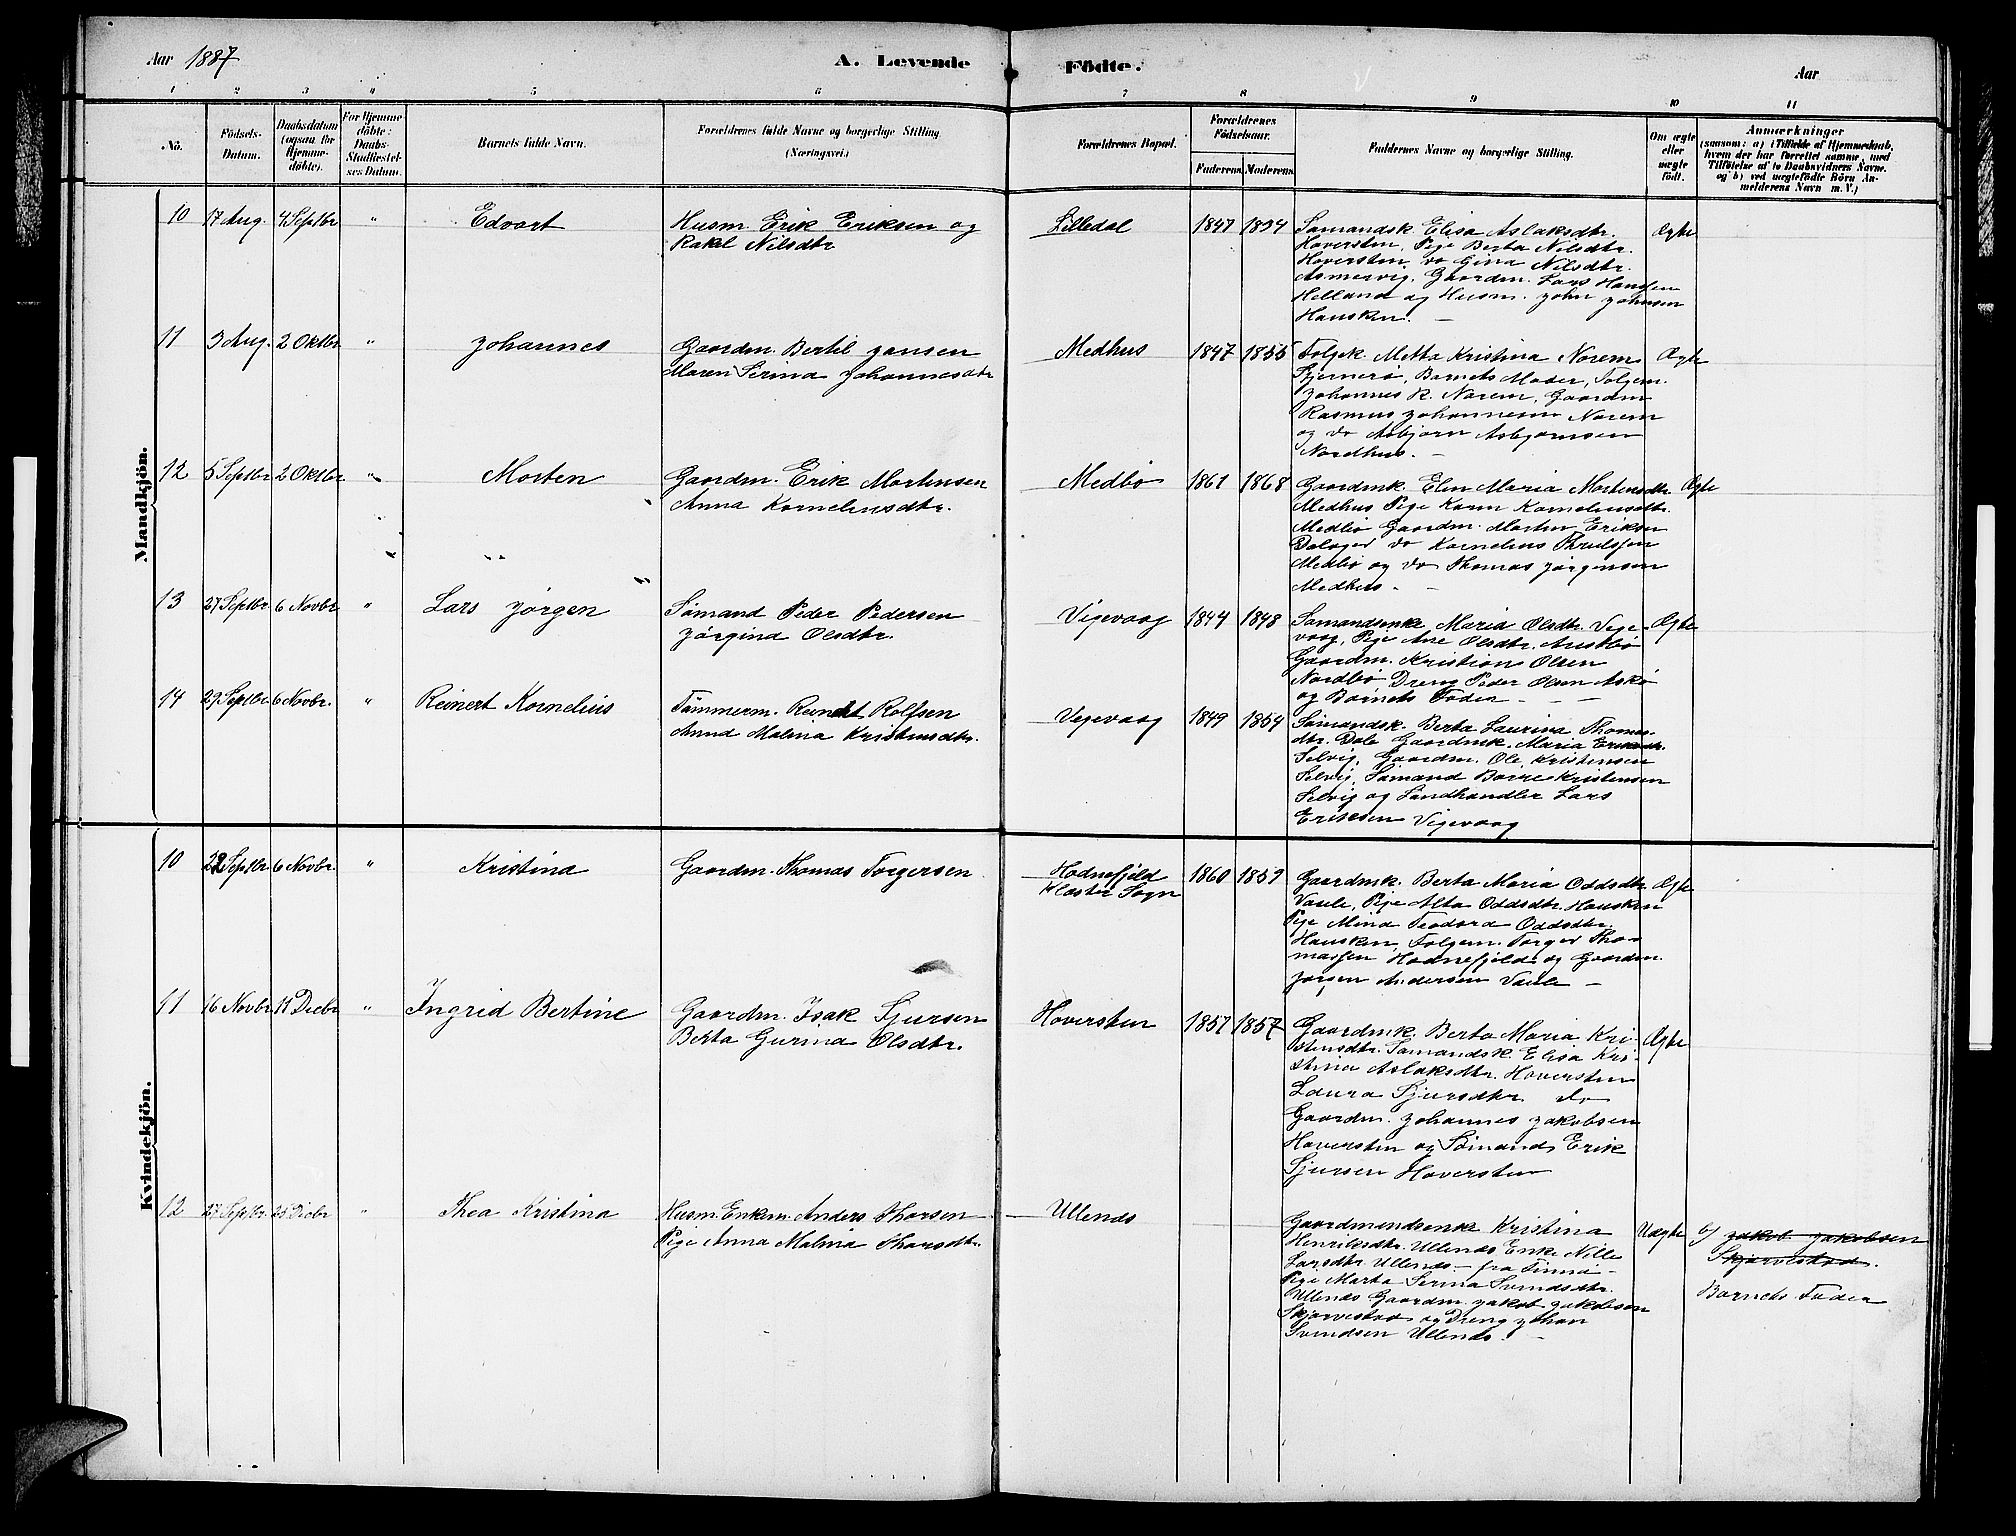 Aar 1887
A. Levende Födte.
Aar
1 2 3 4 5 6 7 8 9 10 11
No.
Födsels-
Datum.
Daabsdatum
(ogsaa for
Hjemme-
döbte).
For Hjemme
döbte:
Daabs-
Stadfæstel-
ses Datum.
Barnets fulde Navn.
Forældrenes fulde Navne og borgerlige Stilling
(Næringsvei.)
Forældrenes Bopæl.
Forældrenes
Födselsaar.
Faderens Moderens
Faddernes Navne og borgerlige Stilling.
Om ægte
eller
uægte
født.
Anmærkninger
(saasom: a) i Tilfælde af Hjemmedaab,
hvem der har forrettet samme, med
Tilföielse af to Daabsvidners Navne.
og b) ved uægtefödte Börn An-
melderens Navn m. V.)
Mandkjön.
10 17 Aug. 4 Septbr " Edvart
Husm. Erik Eriksen og
Rakel Nilsdtr
Lilledal 1847 1854
Sømandsk. Elisa Aslaksdtr.
Hoversten, Pige Berta Nilsdtr.
Hoversten, do Gina Nilsdtr.
Asmervig, Gaardm. Lars Hansen
Helland og Husm. John Johnsen
Hausken. -
Ægte
11 3 Aug. 2 Oktbr " Johannes
Gaardm. Bertil Jansen
Maren Serina Johannesdtr
Medhus 1847 1855
Folgek. Metta Kristina Norem
Stjernerø, Barnets Moder, Folgem.
Johannes K. Norem, Gaardm
Rasmus Johannesen Norem
og do Asbjørn Asbjørnsen
Nordhus. -
Ægte
12 5 Septbr 2 Oktbr " Morten
Gaardm. Erik Mortensen
Anna Korneliusdtr.
Medbø 1861 1868
Gaardmk. Elen Maria Mortensdtr.
Medhus Pige Karen Korneliusdtr.
Medbø Gaardm. Morten Eriksen
Dalager do Kornelius Thrulssen
Medbø og do Thomas Jørgensen
Medhus. -
Ægte
13 27 Septbr 6 Novbr " Lars Jørgen
Sømand Peder Pedersen
Jørgina Olsdtr.
Vigevaag 1844 1848
Sømandsenke Maria Olsdtr. Vige-
vaag, Pige Ane Olsdtr. Austbø
Gaardm. Kristian Olsen
Nordbø Dreng Peder Olsen Askø
og Barnets Fader - -
Ægte
14 29 Septbr 6 Novbr. " Reinert Kornelius
Tømmerm. Reinert Rolfsen
Anna Malena Kristensdtr.
Vegevaag 1849 1854
Sømandsk. Berta Laurina Thomas-
dtr. Dale Gaardmk. Maria Eriksdtr.
Selvig, Gaardm. Ole Kristensen
Selvig, Sømand Borre Kristensen
Selvig og Landhandler Lars
Eriksen Vigevaag
Kvindekjön.
10 22 Septbr 6 Novbr. " Kristina
Gaardm. Thomas Torgersen
Hodnefjeld
Klaster Sogn
1860 1859
Gaardmk. Berta Maria Oddsdtr.
Vaule, Pige Alta Oddsdtr. Hausken
Pige Mina Teodora Oddsdtr.
Hausken, Folgem. Torger Tho-
massen Hodnefjeld og Gaardm.
Jørgen Andersen Vaule -
Ægte
11 16 Novbr 11 Decbr " Ingrid Bertine
Gaardm. Isak Sjursen
Berta Gurina Olsdtr.
Hoversten 1857 1857
Gaardmk. Berta Maria Kri-
stensdtr. Sømandsk. Elisa Kri-
stina Aslaksdtr. Hoversten
Laura Sjursdtr do
Gaardm. Johannes Jakobsen
Hoversten og Sømand Erik
Sjursen Hoversten
Ægte
12 27 Septbr. 25 Decbr " Thea Kristina
Husm. Enkem. Anders Thorsen
Pige Anna Malena Thorsdtr.
Ullenes
Gaardmandsenke Kristina
Henriksdtr. Ullenes Enke Nille
Larsdtr Ullenes - fra Finnø -
Pige Marta Serina Svendsdtr.
Ullenes Gaardm. Jakob Jakobsen
Skjørvestad og Dreng Johan
Svendsen Ullenes. -
Uægte
b) Jakob Jakobsen
Skjørvestad.
Barnets Fader